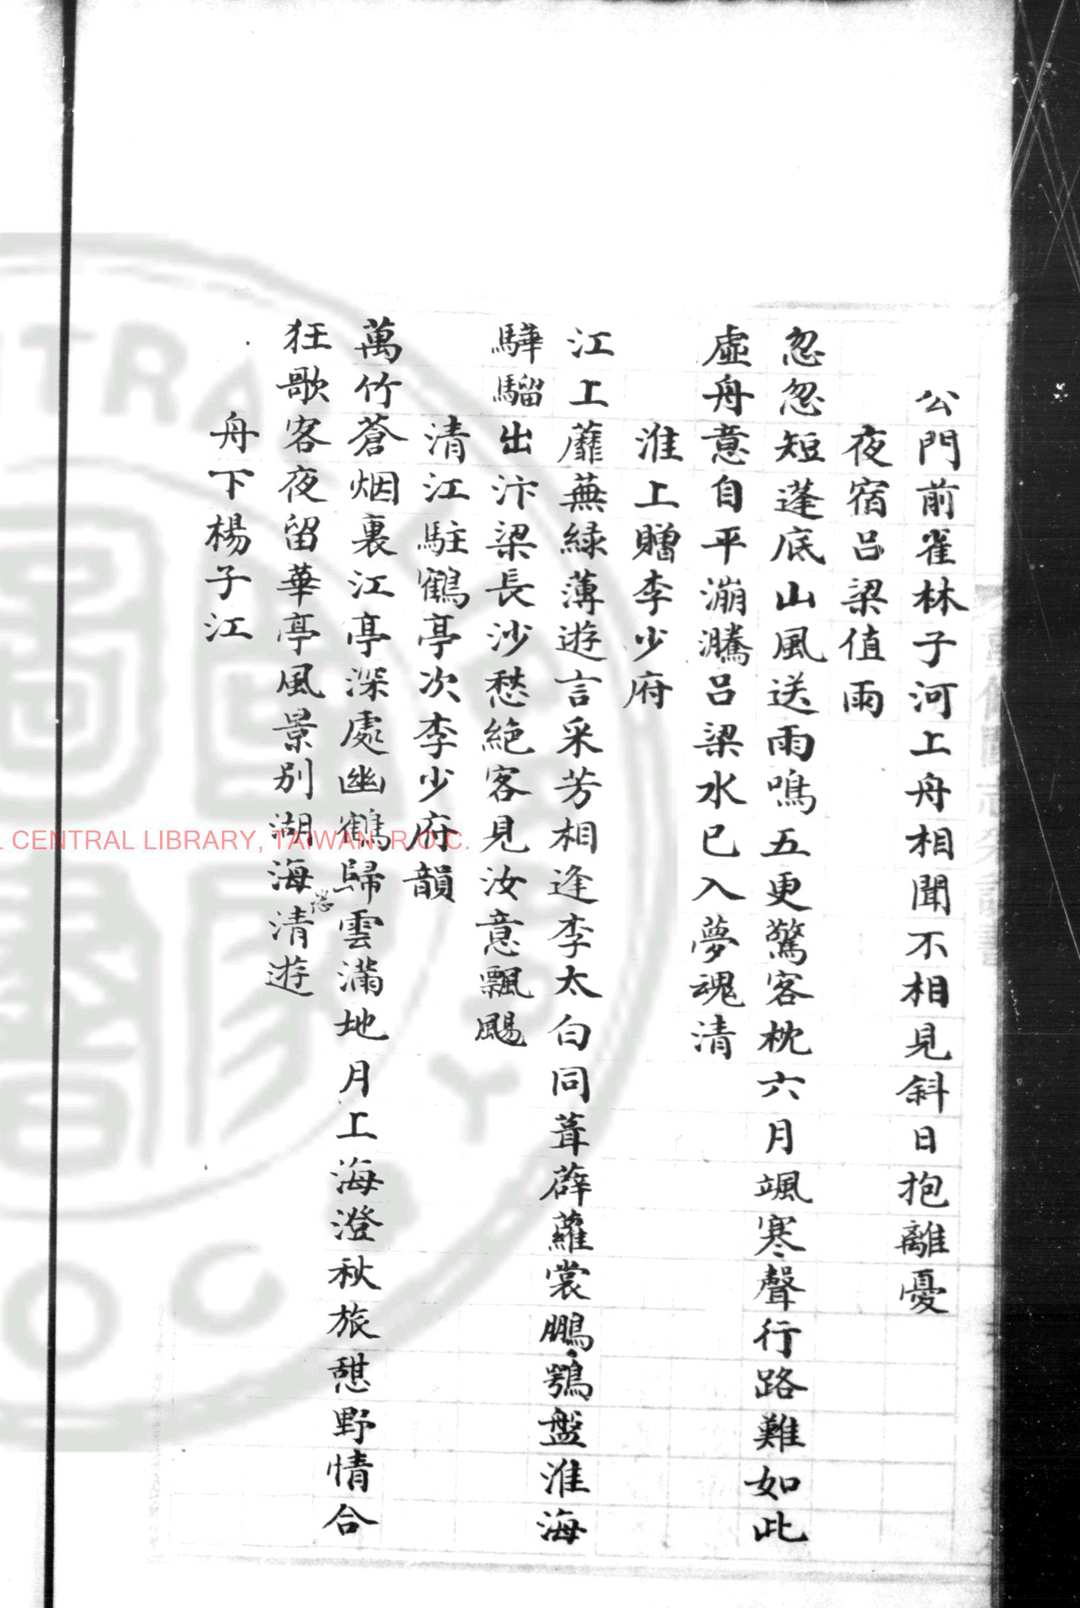 公門前雀林子河上舟相聞不相見斜日抱離憂
夜宿呂梁值雨
忽忽短蓬底山風送雨鳴五更驚客枕六月颯寒聲行路難如此
虛舟意自平漰騰呂梁水已入夢魂清
淮上贈李少府
江上蘼蕪綠薄遊言采芳相逢李太白同葺薜蘿裳鵬鶚盤淮海
驊騮出汴梁長沙愁絕客見汝意飄颺
清江駐鶴亭次李少府韻
萬竹蒼烟裏江亭深處幽鶴歸雲滿地月上海澄秋旅憇野情合
狂歌客夜留華亭風景別湖海清遊
舟下楊子江
CENTRAL LIBRARY, TAIWAN. R.O.C.